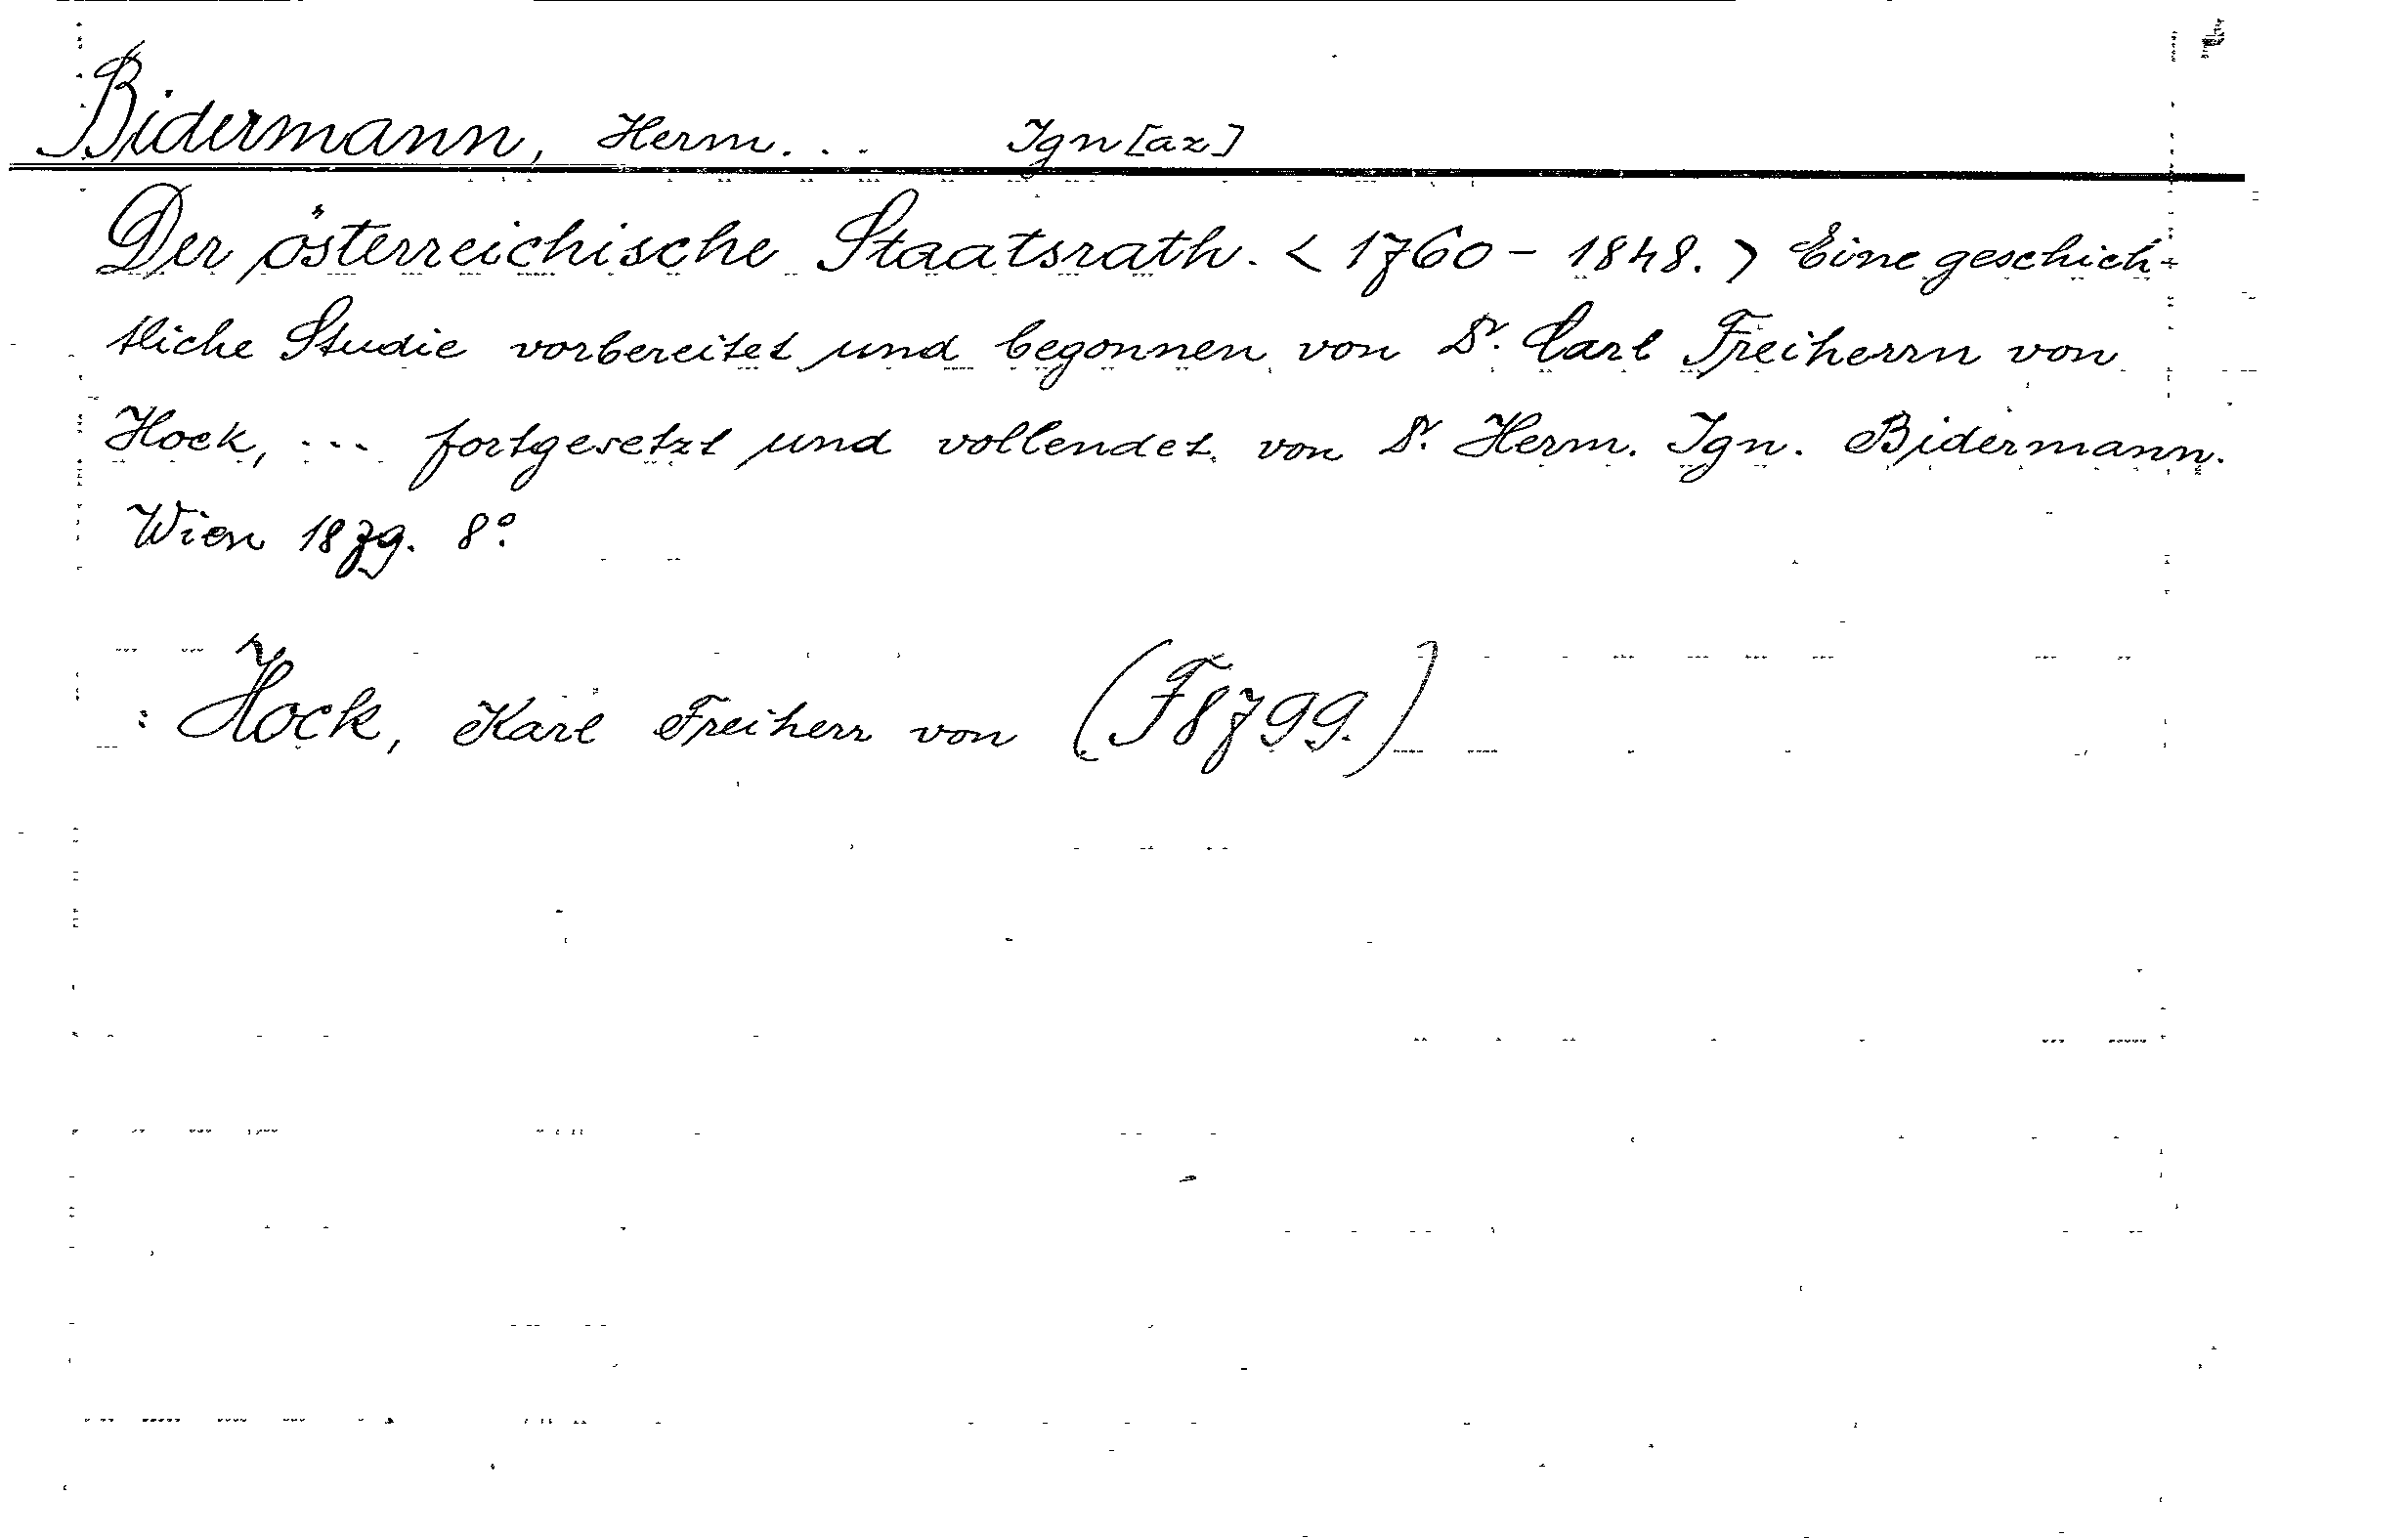 Bidermann, Herm... Ign[az]
Der österreichische Staatsrath. < 1760 - 1848. > Eine geschich-
tliche Studie vorbereitet und begonnen von Dr. Carl Freiherrn von
Hock, ... fortgesetzt und vollendet von Dr. Herm. Ign. Bidermann.
Wien 1879. 8°.
: Hock, Karl Freiherr von (F8799.)